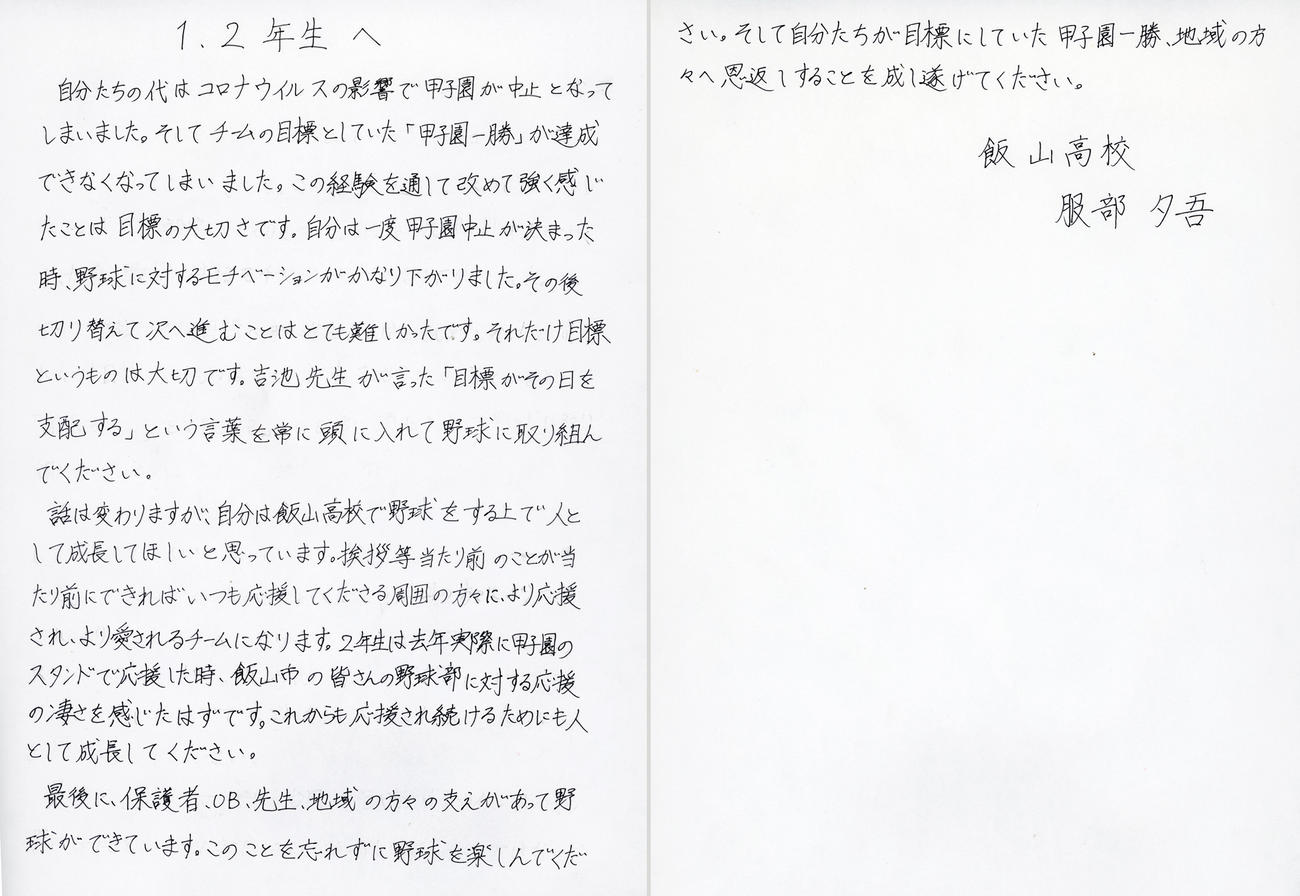 1.2年生へ
自分たちの代はコロナウイルスの影響で甲子園が中止となって
しまいました。そしてチームの目標としていた「甲子園一勝」が達成
できなくなってしまいました。この経験を通して改めて強く感じ
たことは目標の大切さです。自分は一度甲子園中止が決まった
時、野球に対するモチベーションがかなり下がりました。その後
切り替えて次へ進むことはとても難しかったです。それだけ目標
というものは大切です。吉池先生が言った「目標がその日を
支配する」という言葉を常に頭に入れて野球に取り組ん
でください。
話は変わりますが、自分は飯山高校で野球をする上で人と
して成長してほしいと思っています。挨拶等当たり前のことが当
たり前にできればいつも応援してくださる周囲の方々に、より応援
され、より愛されるチームになります。2年生は去年実際に甲子園の
スタンドで応援した時、飯山市の皆さんの野球部に対する応援
の凄さを感じたはずです。これからも応援され続けるためにも人
として成長してください。
最後に、保護者、OB、先生、地域の方々の支えがあって野
球ができています。このことを忘れずに野球を楽しんでくだ
さい。そして自分たちが目標にしていた甲子園一勝、地域の方
々へ恩返しすることを成し遂げてください。
飯山高校
服部 夕吾